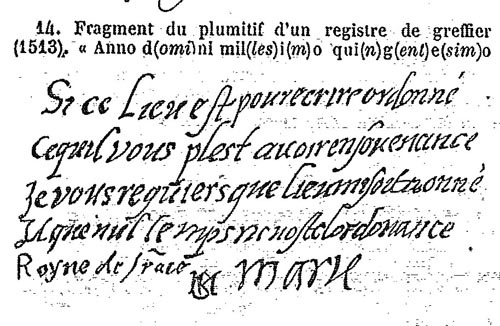 14. Fragment du plumitif d'un registre de greffier
(1513). « Anno d(omi)ni mil(les)i(m)o qui(n)g(ent)e(sim)o
Si ce Lieu est pour ecrire ordonné
Ce quil vous plest auoir en souenance
Je vous requiers que lieu mi soet donné
Et que nul temps nen oste lordonance
Royne de france MARIE